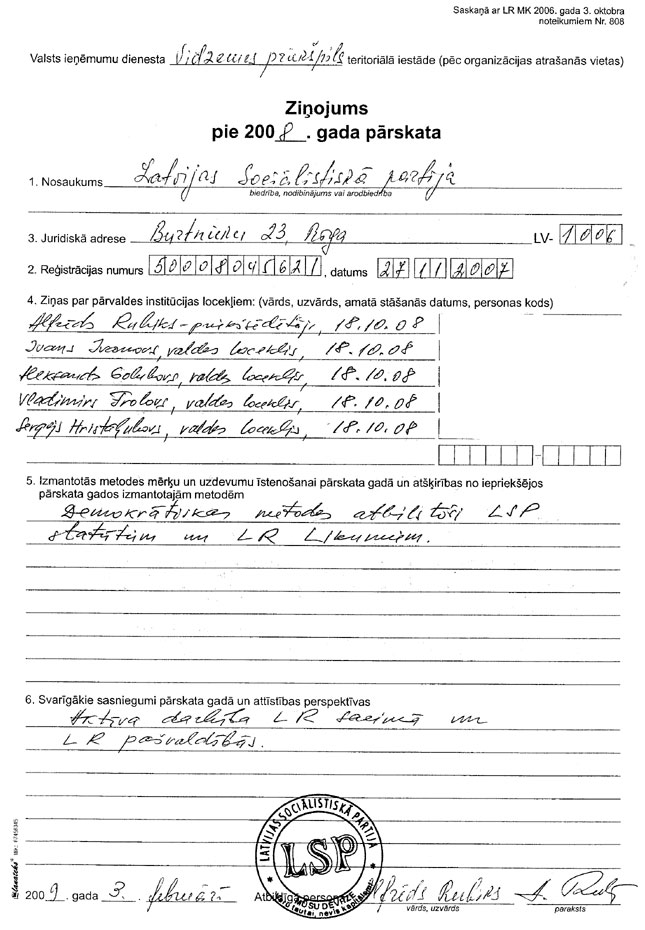 Saskaņā ar LR MK 2006. gada 3. oktobra
noteikumiem Nr. 808
Valsts ieņēmumu dienesta Vidzemes priekšpils teritoriālā iestāde (pēc organizācijas atrašanās vietas)
Ziņojums
pie 2008. gada pārskata
1. Nosaukums Latvijas Sociālistiskā partija
biedrība, nodibinājums vai arodbiedrība
3. Juridiskā adrese Burtnieku 23, Rīga LV- 1006
2. Reģistrācijas numurs 50008045621, datums 27 11 2007
4. Ziņas par pārvaldes institūcijas locekļiem: (vārds, uzvārds, amatā stāšanās datums, personas kods)
Alfrēds Rubiks - priekšsēdētājs, 18.10.08
Ivans Ivanovs, valdes loceklis, 18.10.08
Aleksandrs Golubovs, valdes loceklis, 18.10.08
Vladimirs Frolovs, valdes loceklis, 18.10.08
Sergejs Hristoļubovs, valdes loceklis, 18.10.08
5. Izmantotās metodes mērķu un uzdevumu īstenošanai pārskata gadā un atšķirības no iepriekšējos
pārskata gados izmantotajām metodēm
Demokrātiskas metodes atbilstoši LSP
statūtiem un LR Likumiem.
6. Svarīgākie sasniegumi pārskata gadā un attīstības perspektīvas
Aktīva darbība LR saeimā un
LR pašvaldībās.
LATVIJAS SOCIĀLISTISKĀ PARTIJA
LSP
MŪSU DEVĪZE
kalpo tautai, nevis kapitālam!
2009. gada 3. februārī Atbildīgā persona Alfrēds Rubiks
vārds, uzvārds paraksts